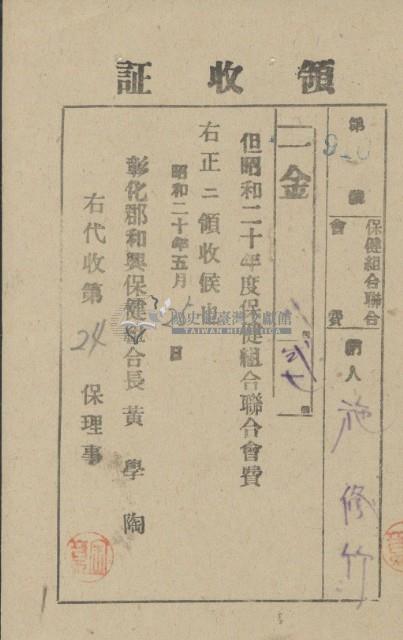 領收証
第 號
保健組合聯合
會費
納人 施修竹
一金
但昭和二十年度保健組合聯合會費
右正ニ領收候也
昭和二十年五月 日
彰化郡和興保健組合長 黃學陶
右代收第24保理事
國史館臺灣文獻館
TAIWAN HISTORICA